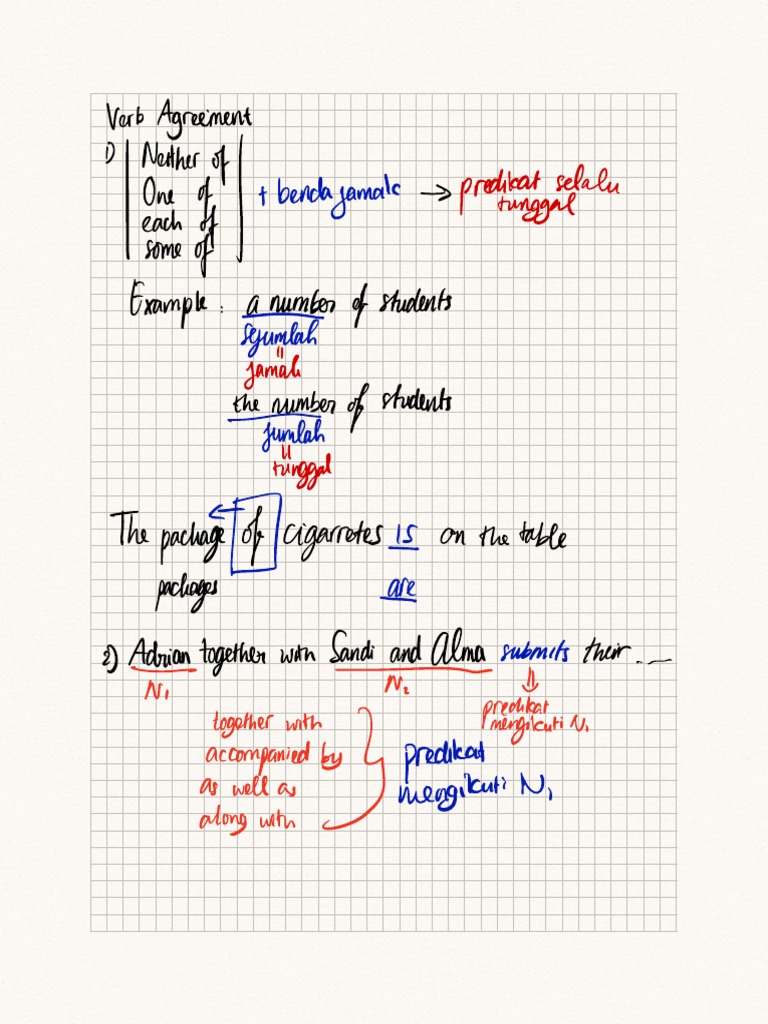 Verb Agreement
1) Neither of
One of
each of
some of
+ benda jamak → predikat selalu
tunggal
Example : a number of students
sejumlah
=
jamak
the number of students
jumlah
=
tunggal
The package of cigarretes is on the table
packages are
2) Adrian together with Sandi and Alma submits their ...
N1 N2
predikat
mengikuti N1
together with
accompanied by
as well as
along with
predikat
mengikuti N1